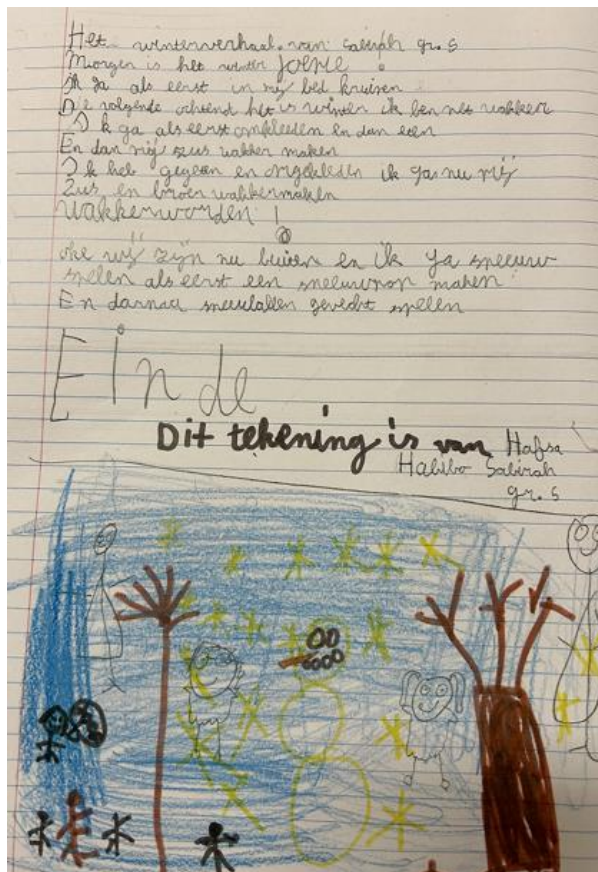 Het winterverhaal. van Sabirah gr. 5
Morgen is het winter joepie !
ik ga als eerst in mij bed kruipen
De volgende ochtend het is winter ik ben net wakkeer
Ik ga als eerst omkleeden en dan eten
En dan mij zus wakker maken
Ik heb gegeen en omgekleden ik ga nu mij
zus en broer wakkermaken
Wakkerworden !
oke wij zijn nu buiten en ik ga sneeuw
spelen als eerst een sneeuwpop maken
En darnaa sneeuballen gevecht spelen
Einde
Dit tekening is van Hafsa
Habibo Sabirah
gr. 5